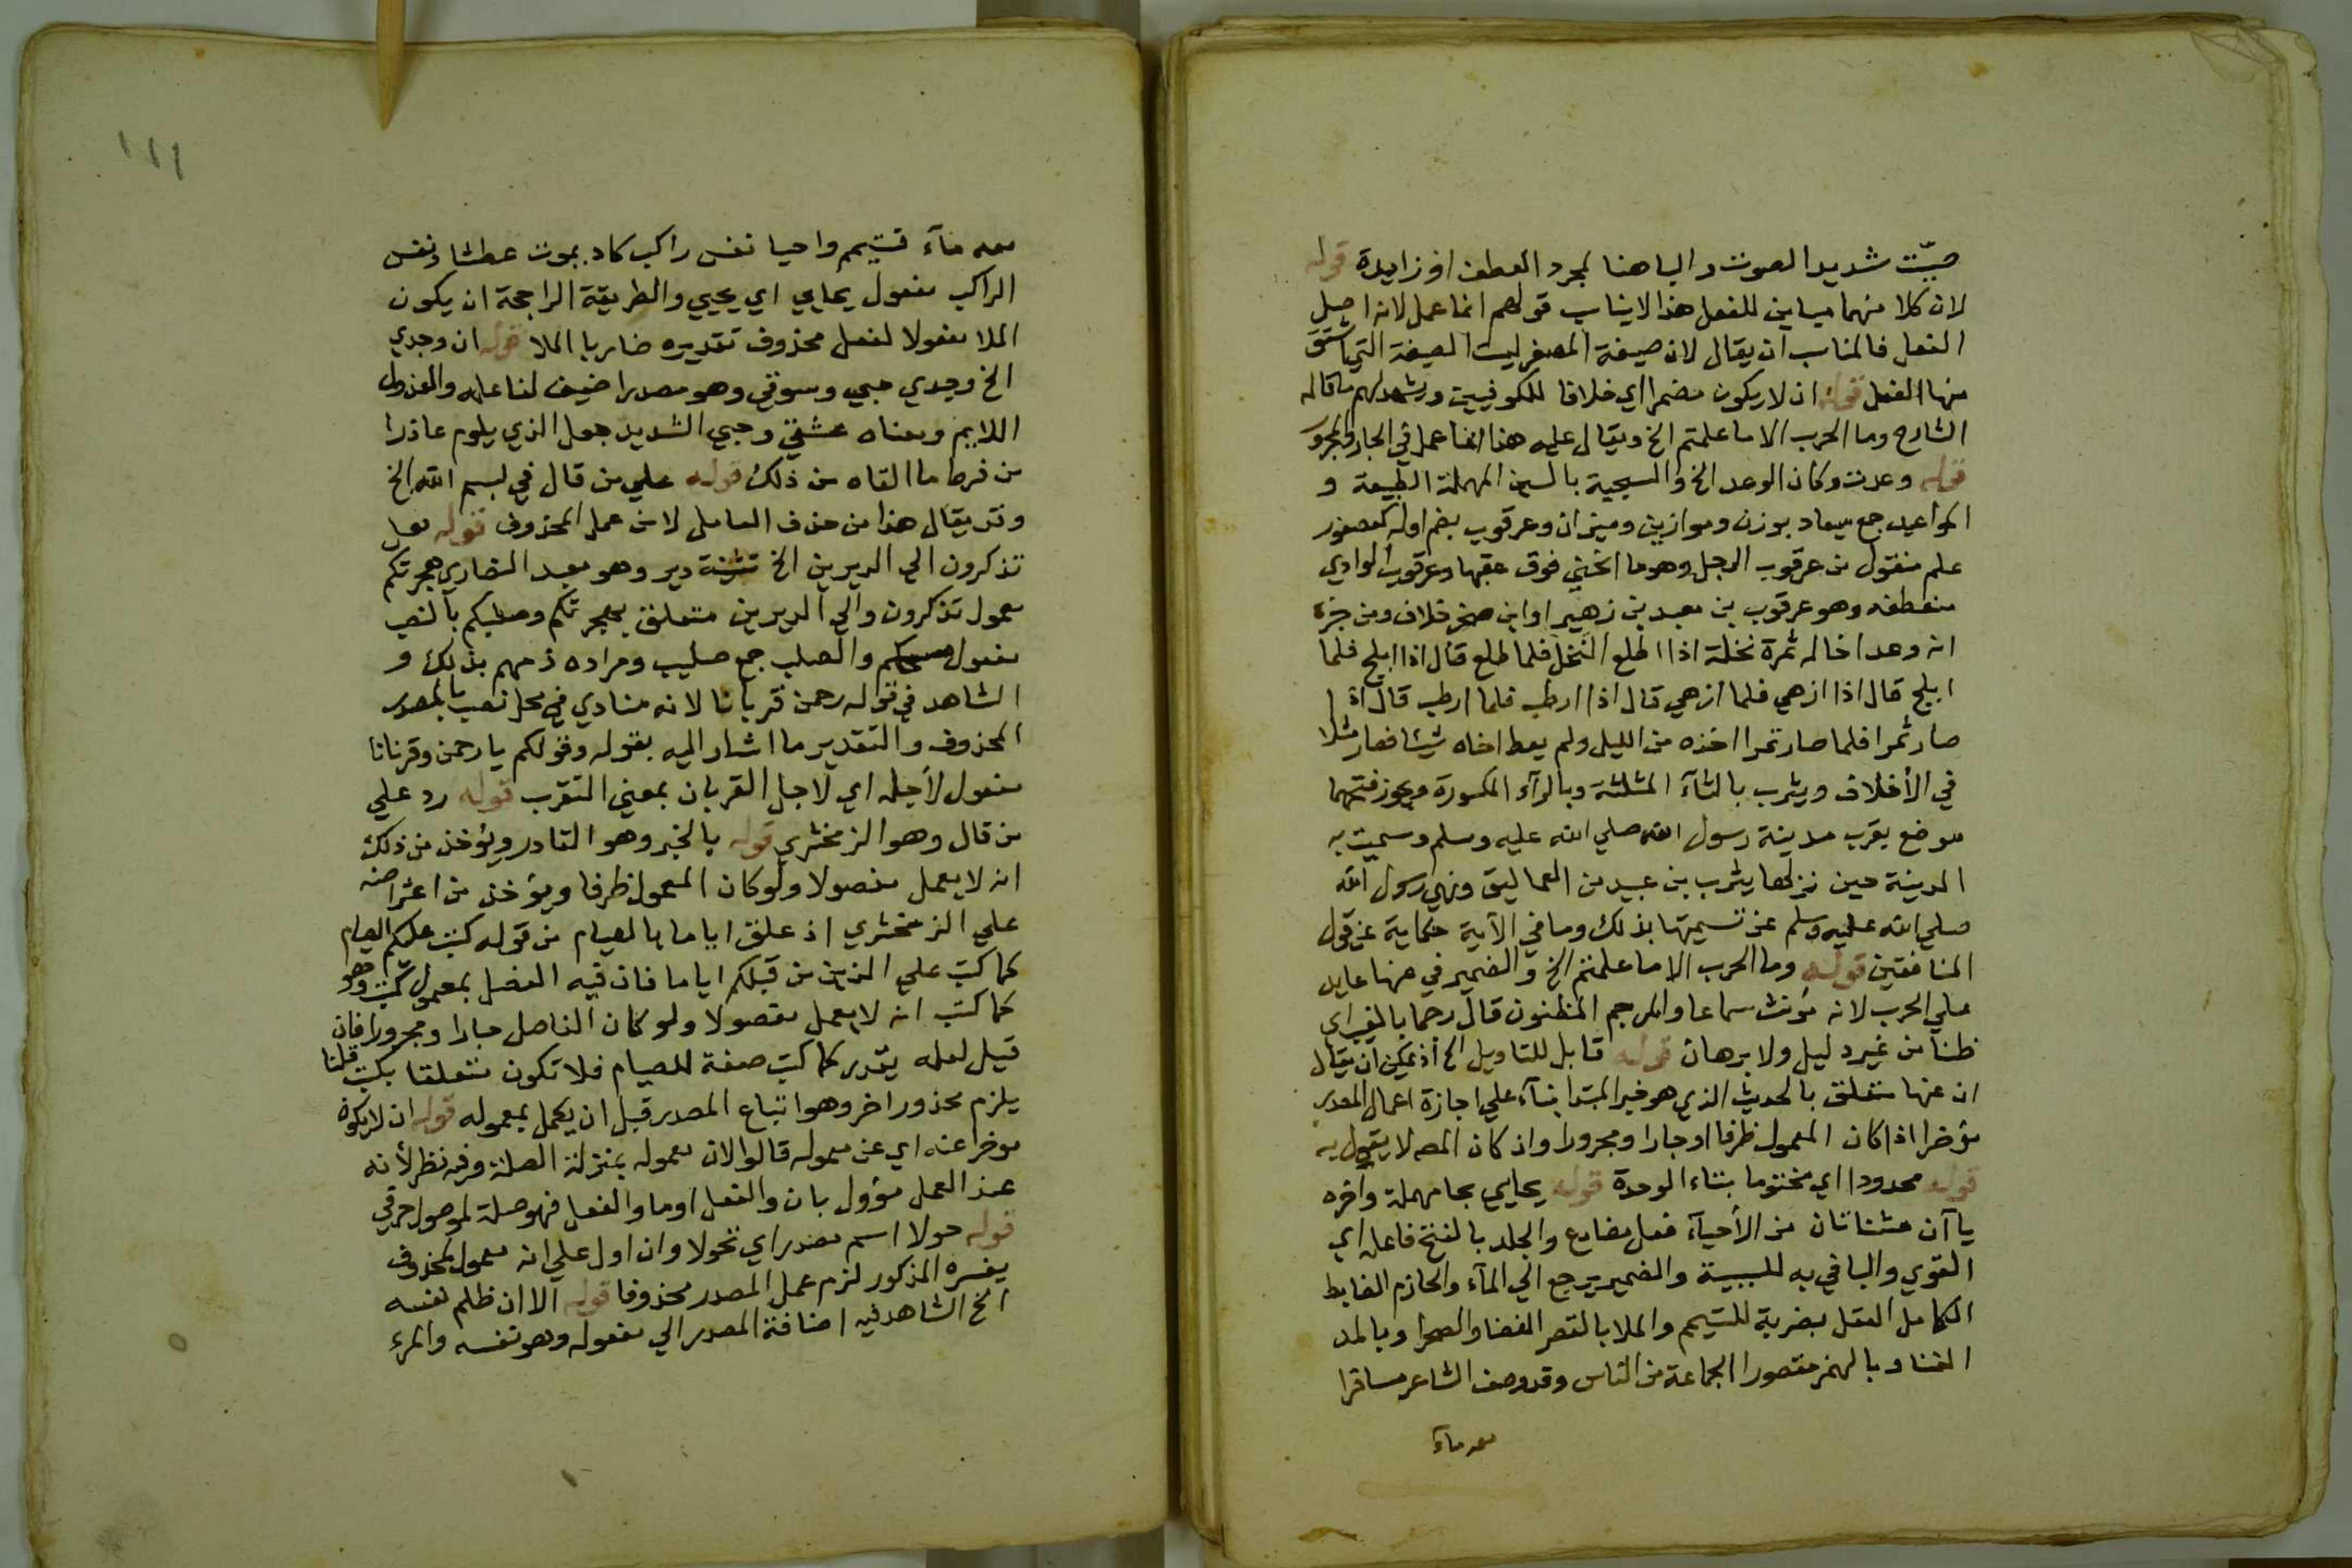 صيّت شديد الصوت والباهنا لمجرد العطف او زايدة قوله
لان كلا منهما مباين للفعل هذا لا يناسب قولهم انما عمل لانه اصل
الفعل فالمناسب ان يقال لان صيغة المصغر ليست الصيغة التي اشتق
منها الفعل قوله ان لا يكون مضمرا اي خلافا للكوفيين ويشهد لهم ما قاله
الشارح وما الحرب الا ما علمتم الخ ويقال عليه هنا انما عمل في الجار والمجرور
قوله وعدت وكان الوعد الخ والسجية بالسين المهملة الطبيعة و
المواعيد جمع ميعاد بوزن وموازين وميزان وعرقوب بضم اوله كعصفور
علم منقول من عرقوب الرجل وهو ما انحني فوق عقبها وعرقوب الوادي
منعطفه وهو عرقوب بن معبد بن زهير او ابن صخر خلاف ومن خبره
انه وعد اخا له ثمرة نخلة اذا اطلع النخل فلما طلع قال اذا ابلح فلما
ابلح قال اذا ازهي فلما ازهي قال اذا ارطب فلما ارطب قال اذا
صار تمرا فلما صار تمرا اخذه من الليل ولم يعط اخاه شيئا فصار مثلا
في الاخلاف ويثرب بالثآء المثلثة وبالرآء المكسورة ويجوز فتحها
موضع يقرب مدينة رسول الله صلي الله عليه وسلم وسميت به
المدينة حين نزلها يثرب بن عبيد من العماليق ونهي رسول الله
صلي الله عليه وسلم عن تسميتها بذلك وما في الآية حكاية عن قول
المنافقين قوله وما الحرب الا ما علمتم الخ والضمير في عنها عايد
علي الحرب لانه مؤنث سماعا والمرجم المظنون قال رجما بالغيب اي
ظنا من غير دليل ولا برهان قوله قابل للتاويل الخ اذ يمكن ان يقال
ان عنها متعلق بالحديث الذي هو خبر المبتدا بنآء علي اجازة اعمال المصدر
مؤخرا اذا كان المعمول ظرفا او جارا ومجرورا وان كان المص لا يقول به
قوله محدودا اي مختوما بتاء الوحدة قوله يحايي بحا مهملة واخره
يآ ان مثناتان من الاحيآء فعل مضارع والجلد بالفتح فاعله اي
القوي والبا في به للسببية والضمير يرجع الي المآء والحازم الضابط
الكامل العقل بضربة للتيمم والملا بالقصر الفضا والصحرا وبالمد
الغنا وبالهمز مقصورا الجماعة من الناس وقد وصف الشاعر مسافرا
معه مآء
١١١
معه مآء فتيمم واحيا نفس راكب كاد يموت عطشا ونفس
الراكب مفعول يحايي اي يحيي والطريقة الراجحة ان يكون
الملا مفعولا لفعل محذوف تقديره ضاربا الملا قوله ان وجدي
الخ وجدي حبي وسوقي وهو مصدر اضيف لفاعله والعذول
اللايم ومعناه عشقي وحبي الشديد جعل الذي يلوم عاذرا
من فرط ما القاه من ذلك قوله علي من قال في بسم الله الخ
وقد يقال هذا من حذف العامل لا من عمل المحذوف قوله هل
تذكرون الي الديرين الخ تثنية دير وهو معبد النصاري هجرتكم
معمول تذكرون والي الديرين متعلق بهجرتكم وصلبكم بالنصب
مفعول مسحكم والصلب جمع صليب ومراده ذمهم بذلك و
الشاهد في قوله رحمن قربانا لانه منادي في محل نصب بالمصدر
المحذوف والتقدير ما اشار اليه بقوله وقولكم يا رحمن وقربانا
مفعول لأجله اي لاجل القربان بمعني التقرب قوله رد علي
من قال وهو الزمخشري قوله بالخبر وهو القادر ويؤخذ من ذلك
انه لا يعمل مفصولا ولو كان المعمول ظرفا ويؤخذ من اعتراضه
علي الزمخشري اذ علق اياما بالصيام من قوله كتب عليكم الصيام
كما كتب علي الذين من قبلكم اياما فان فيه الفصل بمعمول كتب وهو
كما كتب انه لا يعمل مفصولا ولو كان الفاصل جارا ومجرورا فان
قيل لعله يقدر كما كتب صفة للصيام فلا تكون متعلقا بكتب قلنا
يلزم محذور اخر وهو اتباع المصدر قبل ان يكمل بمعموله قوله ان لا يكون
موخرا عنه اي عن معموله قالوا لان معموله بمنزلة الصلة وفيه نظر لأنه
عند العمل مؤول بان والفعل او ما والفعل فهو صلة لموصول حرفي
قوله حولا اسم مصدر اي تحولا وان اول علي انه معمول لمحذوف
يفسره المذكور لزم عمل المصدر محذوفا قوله الا ان ظلم نفسه
الخ الشاهد فيه اضافة المصدر الي مفعوله وهو نفسه والمرء